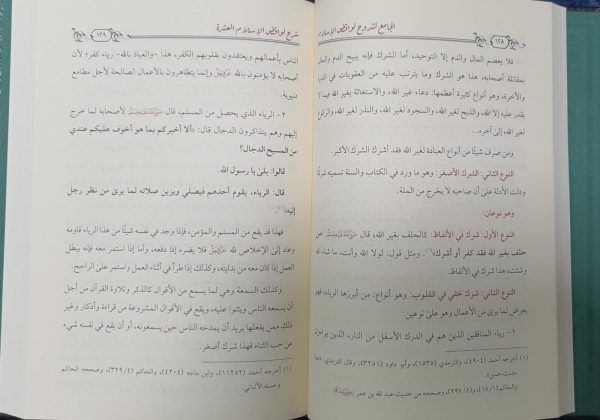 الجامع لشروح نواقض الإسلام
١٢٨
فلا يعصم المال والدم إلا التوحيد، أما الشرك فإنه يبيح الدم والمال
بمقاتلة أصحابه، هذا هو الشرك وما يترتب عليه من العقوبات في الدنيا
والآخرة، وهو أنواع كثيرة أعظمها: دعاء غير الله، والاستغاثة بغير الله فيما لا
يقدر عليه إلا الله، والذبح لغير الله، والسجود لغير الله، والنذر لغير الله، والركوع
لغير الله، إلى آخره..
ومن صرف شيئًا من أنواع العبادة لغير الله فقد أشرك الشرك الأكبر.
النوع الثاني: الشرك الأصغر: وهو ما ورد في الكتاب والسنة تسميته شركًا
ودلت الأدلة على أن صاحبه لا يخرج من الملة.
وهو نوعان:
النوع الأول: شرك في الألفاظ: كالحلف بغير الله، قال ﷺ: من
حلف بغير الله فقد كفر أو أشرك(١). ومثل قول: لولا الله وأنت، ما شاء الله
وشئت، هذا شرك في الألفاظ.
النوع الثاني: شرك خفي في القلوب: وهو أنواع: من أبرزها الرياء، فهو
يعرض لما يرى من الأعمال وهو على نوعين:
١- رياء المنافقين الذين هم في الدرك الأسفل من النار، الذين يراءون
(١) أخرجه أحمد (٤٩٠٤)، والترمذي (١٥٣٥)، وأبو داود (٣٢٥١) وقال الترمذي: هذا
حديث حسن.
والحاكم (١٨/١)، (٢٩٧/٤) وصححه من حديث عبد الله بن عمر
شرح نواقض الإسلام العشرة
١٢٩
الناس بأعمالهم ويعتقدون بقلوبهم الكفر، هذا -والعياذ بالله- رياء كفر؛ لأن
أصحابه لا يؤمنون بالله ﷿ وإنما يتظاهرون بالأعمال الصالحة لأجل مطامع
دنيوية.
٢- الرياء الذي يحصل من المسلم، قال ﷺ لأصحابه لما خرج
إليهم وهم يتذاكرون الدجال قال: «ألا أخبركم بما هو أخوف عليكم عندي
من المسيح الدجال؟
قالوا: بلى يا رسول الله.
قال: الرياء، يقوم أحدهم فيصلي ويزين صلاته لما يرى من نظر رجل
إليه»(١)
فهذا قد يقع من المسلم والمؤمن، فإذا وجد في نفسه شيئًا من هذا الرياء قاومه
وعاد إلى الإخلاص لله ﷿ فلا يضره إذا دفعه، وأما إذا استمر معه فإنه يبطل
العمل إذا كان معه من بدايته، وكذلك إذا طرأ في أثناء العمل واستمر على الراجح.
وكذلك السمعة وهي لما يسمع من الأقوال كالذكر وتلاوة القرآن من أجل
أن يسمعه الناس ويثنوا عليه، ويقع في الأقوال المشروعة من قراءة وأذكار وغير
ذلك ممن يفعلها يريد أن يمدحه الناس حين يسمعونه، أو أن يقع في نفسه شيء
من حب الثناء فهذا شرك أصغر.
(١) أخرجه أحمد (١١٢٥٢)، وابن ماجه (٤٢٠٤)، والحاكم (٣٢٩/٤)، وصححه الحاكم
وحسنه الألباني